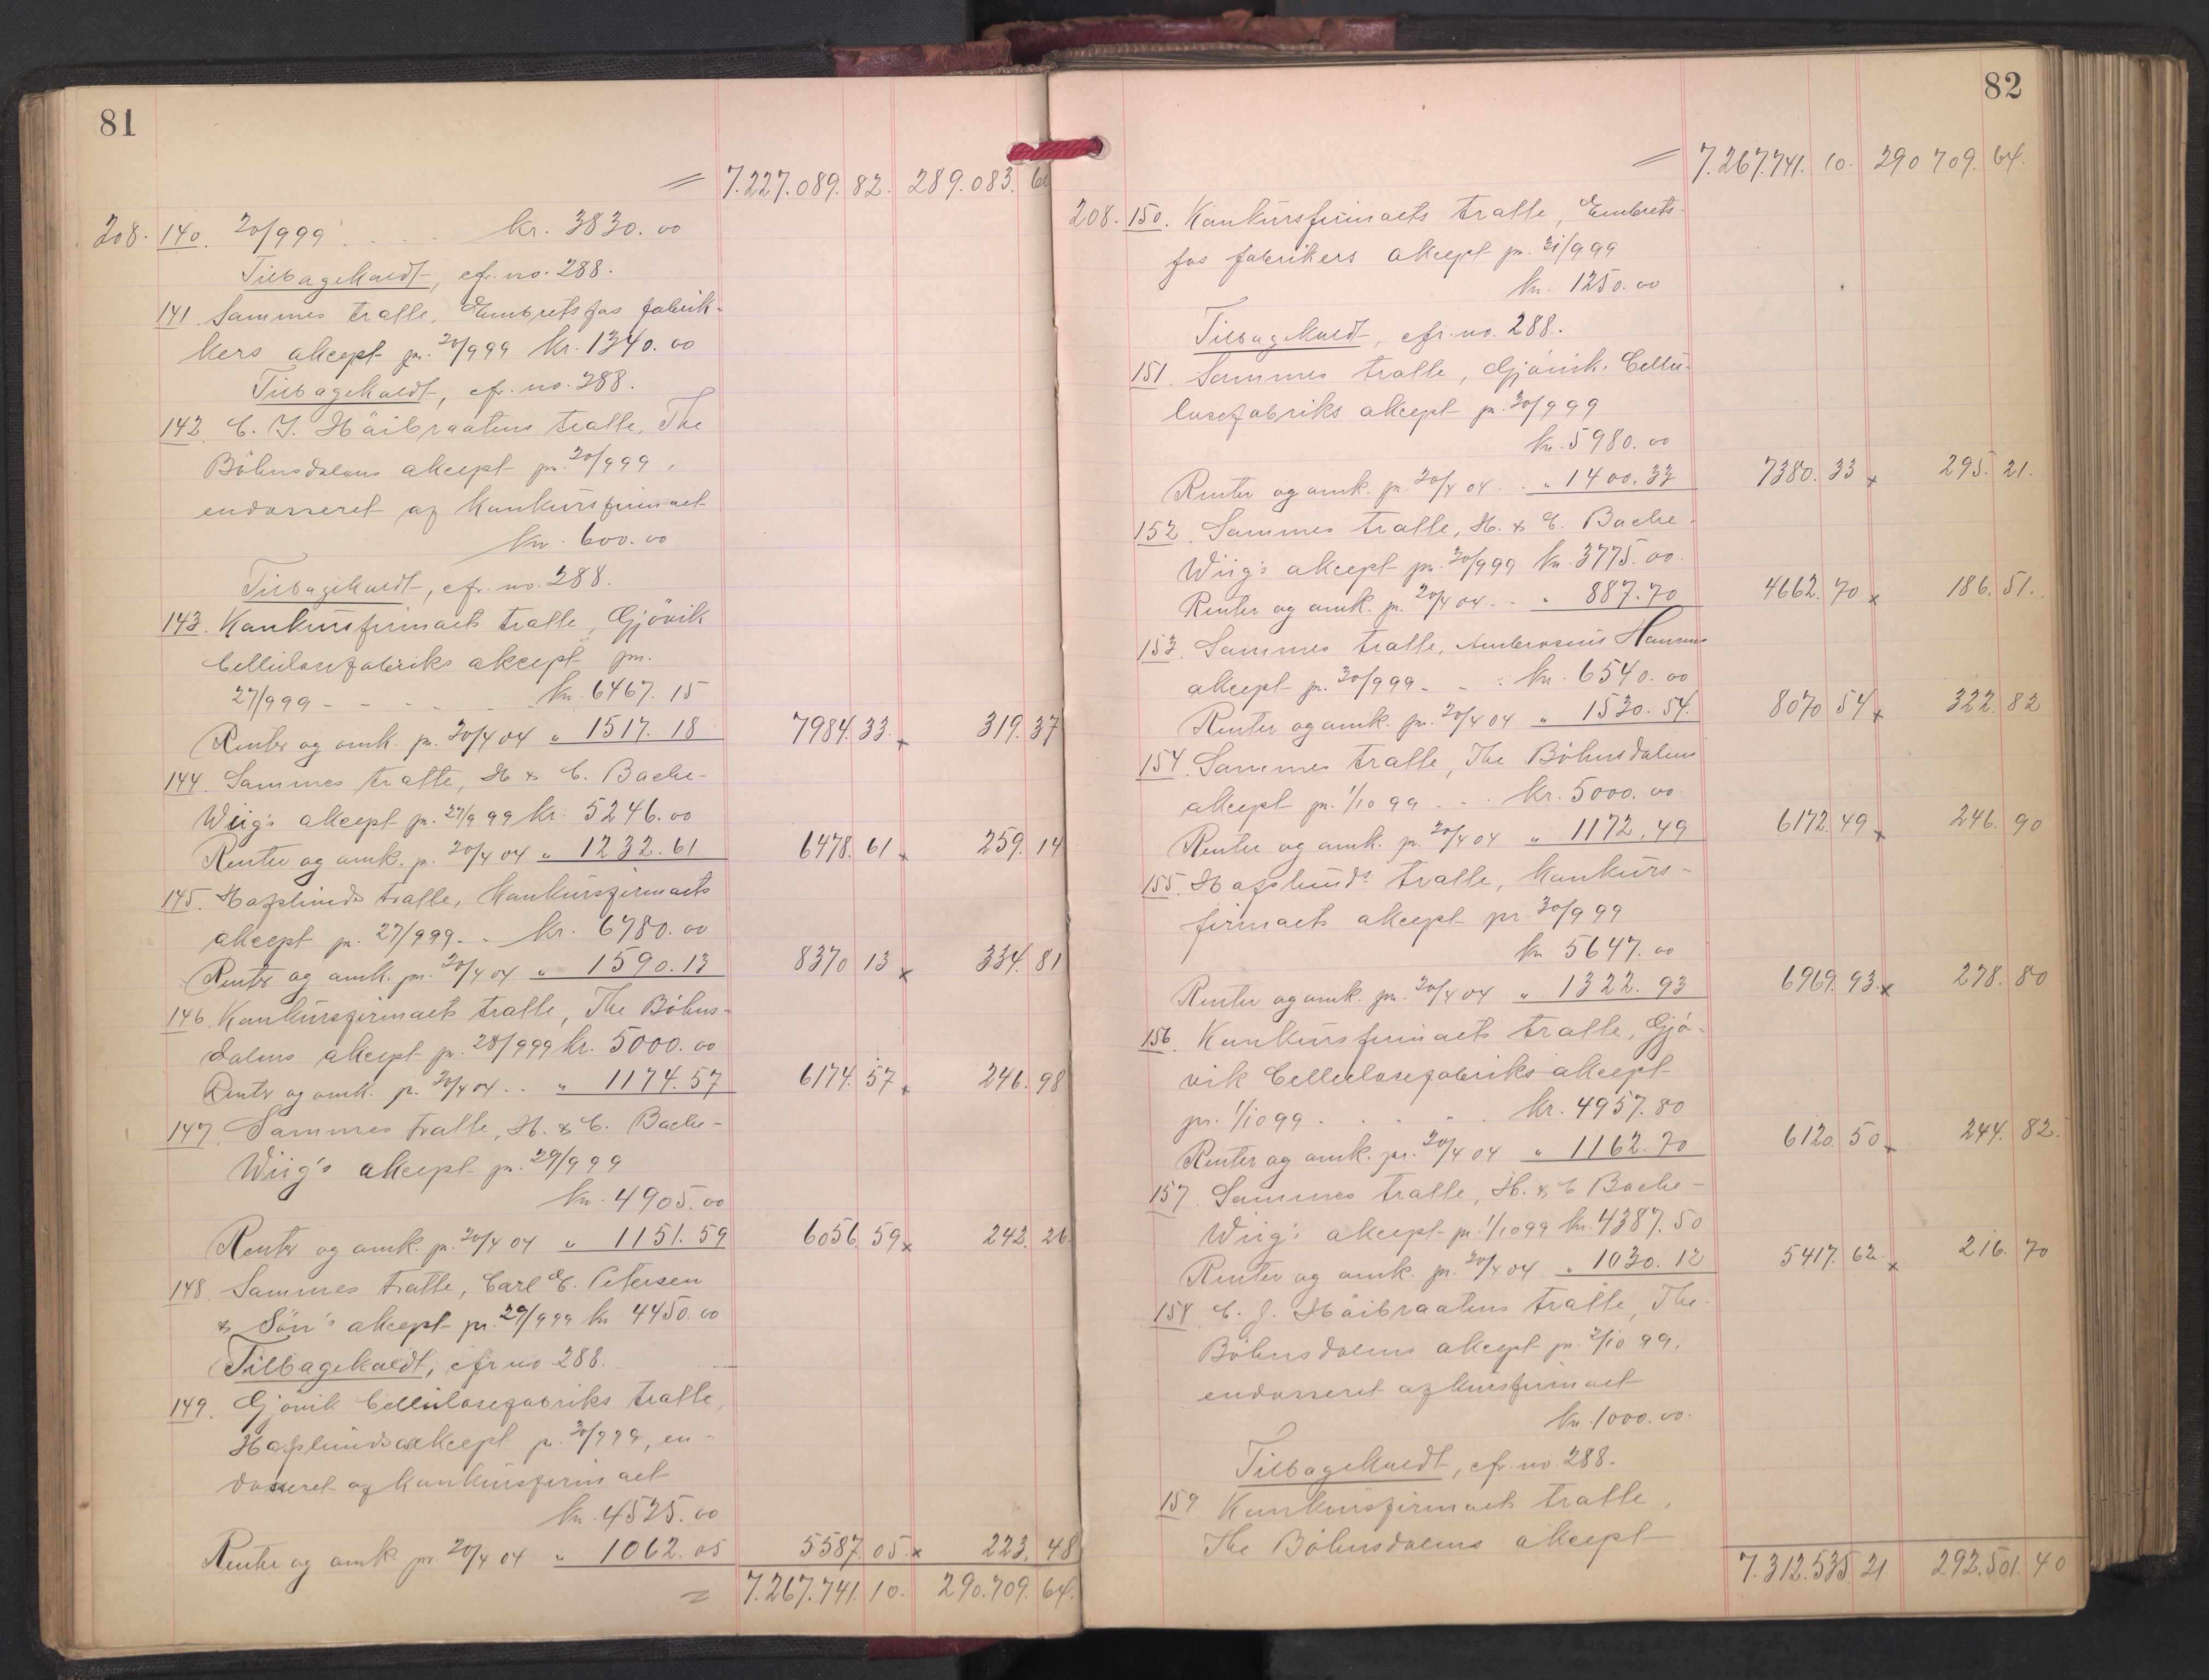 81
= 7.227.089. 82. 289.083. 60
208. 140. 20/9 99 . . . . kr. 3830.00
Tilbagekaldt, cfr. no. 288.
141. Sammes tratte, Embretsfos fabrik-
kers akcept pr. 20/9 99 kr. 1340.00
Tilbagekaldt, cfr. no. 288.
142. C. J. Häibraatens tratte, The
Böhnsdalens akcept pr. 20/9 99,
endosseret af konkursfirmaet
kr. 600.00
Tilbagekaldt, cfr. no. 288.
143. Konkursfirmaets tratte, Gjövik
Cellulosefabriks akcept pr.
27/9 99 - - - - kr. 6467.15
Renter og omk. pr. 20/4 04 „ 1517.18 7984. 33. x 319. 37
144. Sammes tratte, H & C. Bache-
Wiig's akcept pr. 27/9 99 kr. 5246.00
Renter og omk. pr. 20/4 04 „ 1232.61 6478. 61 x 259. 14
145. Hafslunds tratte, konkursfirmaets
akcept pr. 27/9 99 - . kr. 6780.00
Renter og omk. pr. 20/4 04 „ 1590.13 8370 13 x 334. 81
146. Konkursfirmaets tratte, The Böhns-
dalens akcept pr. 28/9 99 kr. 5000.00
Renter og omk. pr. 20/4 04 .. „ 1174.57 6174. 57 x 246. 98
147. Sammes tratte, H. & C. Bache-
Wiig's akcept pr. 29/9 99
kr. 4905.00
Renter og omk. pr. 20/4 04 „ 1151.59 6056. 59 x 242. 26.
148. Sammes tratte, Carl E. Petersen
& Sön's akcept pr. 29/9 99 kr 4450.00
Tilbagekaldt, cfr no 288.
149. Gjövik Cellulosefabriks tratte,
Hafslunds akcept pr. 30/9 99, en-
dosseret af konkursfirmaet
kr. 4525.00
Renter og omk. pr 20/4 04 „ 1062.05 5587. 05. x 223. 48
= 7.267.741. 10. 290.709. 64.
82
= 7.267.741. 10. 290 709. 64.
208. 150. Konkursfirmaets tratte, Embrets-
fos fabrikers akcept pr. 31/9 99
kr. 1250.00
Tilbagekaldt, cfr. no. 288.
151. Sammes tratte, Gjövik. Cellu-
losefabriks akcept pr. 30/9 99
kr. 5980.00
Renter og omk. pr. 20/4 04 . . „ 1400.33 7380. 33 x 295. 21.
152. Sammes tratte, H. & C. Bache-
Wiig's akcept pr. 30/9 99 kr. 3775.00.
Renter og omk. pr. 20/4 04 - - „ 887.70 4662. 70 x 186. 51.
153. Sammes tratte, Ambrosius Hansens
akcept pr. 30/9 99 - - . kr. 6540.00
Renter og omk. pr. 20/4 04 „ 1530.54. 8070 54 x 322. 82
154. Sammes tratte, The Böhnsdalens
akcept pr. 1/10 99 - . . kr. 5000.00.
Renter og omk. pr. 20/4 04 „ 1172.49 6172. 49 x 246. 90
155. Hafslund's tratte, konkurs-
firmaets akcept pr. 30/9 99
kr 5647.00
Renter og omk. pr. 20/4 04 „ 1322.93 6969. 93. x 278. 80
156. Konkursfirmaets tratte, Gjö-
vik Cellulosefabriks akcept
pr. 1/10 99 . . . . kr. 4957.80
Renter og omk. pr. 20/4 04 „ 1162.70 6120. 50 x 244. 82.
157. Sammes tratte, H. & C Bache-
Wiig's akcept pr. 1/10 99 kr. 4387.50
Renter og omk. pr. 20/4 04 „ 1030.12 5417. 62 x 216. 70
158. C. J. Häibraatens tratte, The
Böhnsdalens akcept pr. 2/10 99,
endosseret af kursfirmaet
kr. 1000.00.
Tilbagekaldt, cfr. no 288.
159 Konkursfirmaets tratte,
The Böhnsdalens akcept
7.312.535. 21 292.501. 40